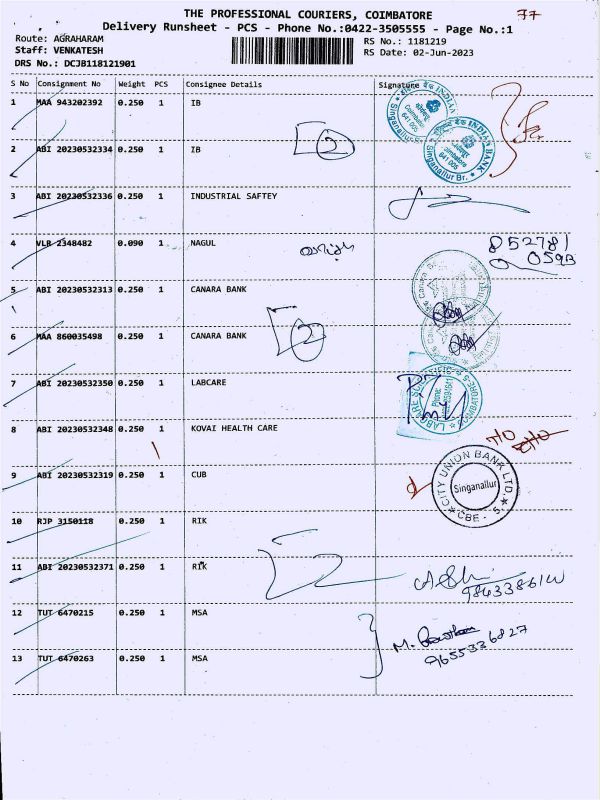 THE PROFESSIONAL COURIERS, COIMBATORE
77
Delivery Runsheet - PCS - Phone No.:0422-3505555 - Page No.:1
Route: AGRAHARAM
RS No.: 1181219
Staff: VENKATESH
RS Date: 02-Jun-2023
DRS No.: DCJB118121901
S No Consignment No Weight PCS Consignee Details Signature
1 MAA 943202392 0.250 1 IB
2
2 ABI 20230532334 0.250 1 IB
INDIAN BANK
Coimbatore
641 005
Singanallur Br.
3 ABI 20230532336 0.250 1 INDUSTRIAL SAFTEY
4 VLR 2348482 0.090 1 NAGUL
852781
059B
5 ABI 20230532313 0.250 1 CANARA BANK
Canara
2
6 MAA 860035498 0.250 1 CANARA BANK
7 ABI 20230532350 0.250 1 LABCARE
LABCARE
8 ABI 20230532348 0.250 1 KOVAI HEALTH CARE
9 ABI 20230532319 0.250 1 CUB
CITY UNION BANK LTD.
Singanallur
CBE - 5.
10 RJP 3150118 0.250 1 RIK
11 ABI 20230532371 0.250 1 RIK
2
12 TUT 6470215 0.250 1 MSA
M.
9655336827
13 TUT 6470263 0.250 1 MSA